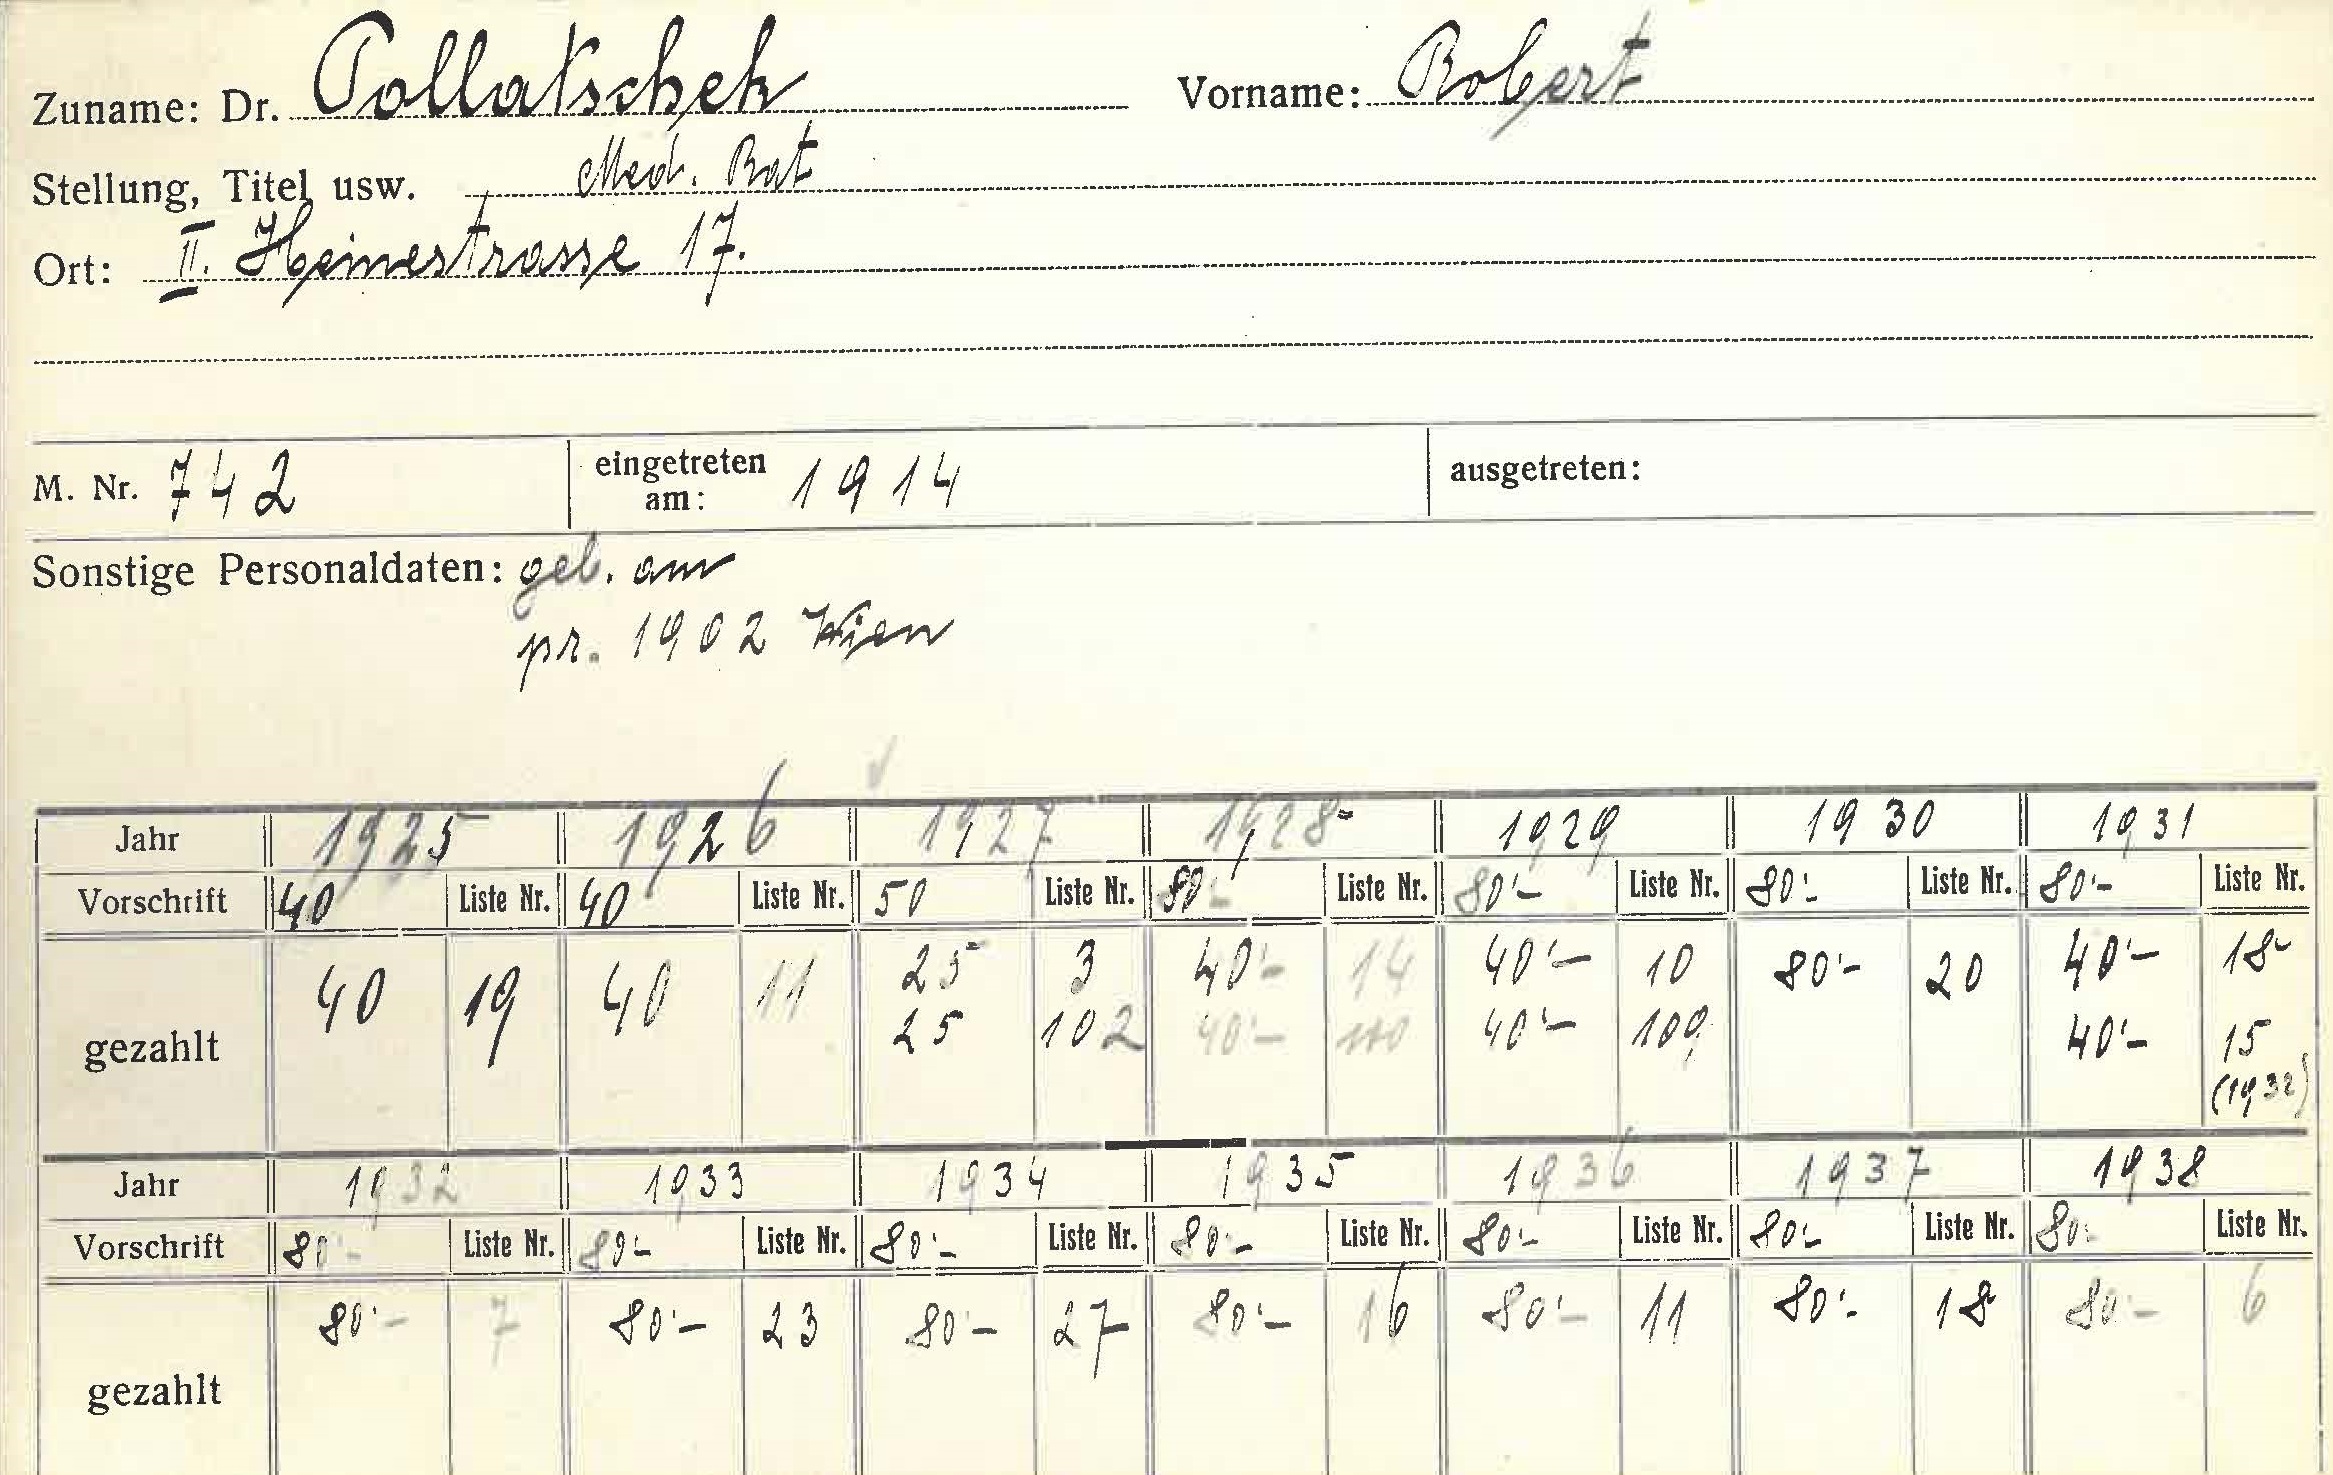 Zuname: Dr. Pollatschek Vorname: Robert
Stellung, Titel usw. Med. Rat
Ort: II. Heinestrasse 17.
M. Nr. 742 eingetreten am: 1914 ausgetreten:
Sonstige Personaldaten: geb. am
pr. 1902 Wien
Jahr 1925 1926 1927 1928 1929 1930 1931
Vorschrift 40 Liste Nr. 40 Liste Nr. 50 Liste Nr. 80'- Liste Nr. 80'- Liste Nr. 80'- Liste Nr. 80'- Liste Nr.
gezahlt 40 19 40 11 25 3 40'- 14 40'- 10 80'- 20 40'- 18
25 102 40'- 110 40'- 109 40'- 15
(1932)
Jahr 1932 1933 1934 1935 1936 1937 1938
Vorschrift 80'- Liste Nr. 80'- Liste Nr. 80'- Liste Nr. 80'- Liste Nr. 80'- Liste Nr. 80'- Liste Nr. 80'- Liste Nr.
gezahlt 80'- 7 80'- 23 80'- 27 80'- 16 80'- 11 80'- 18 80'- 6